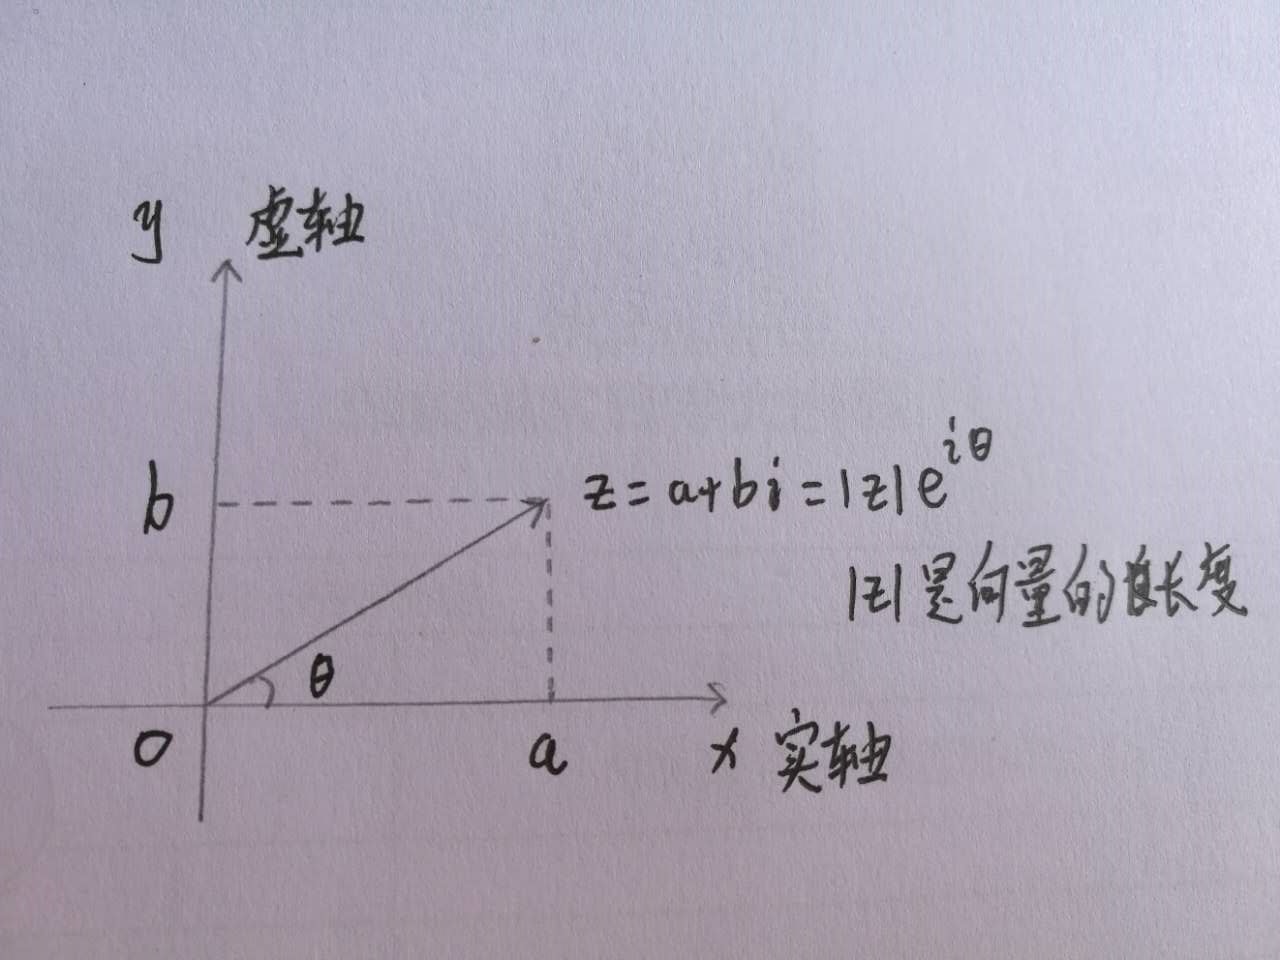 y 虚轴
b
z=a+bi=|z|e^{iθ}
|z|是向量的长度
θ
O
a
x 实轴